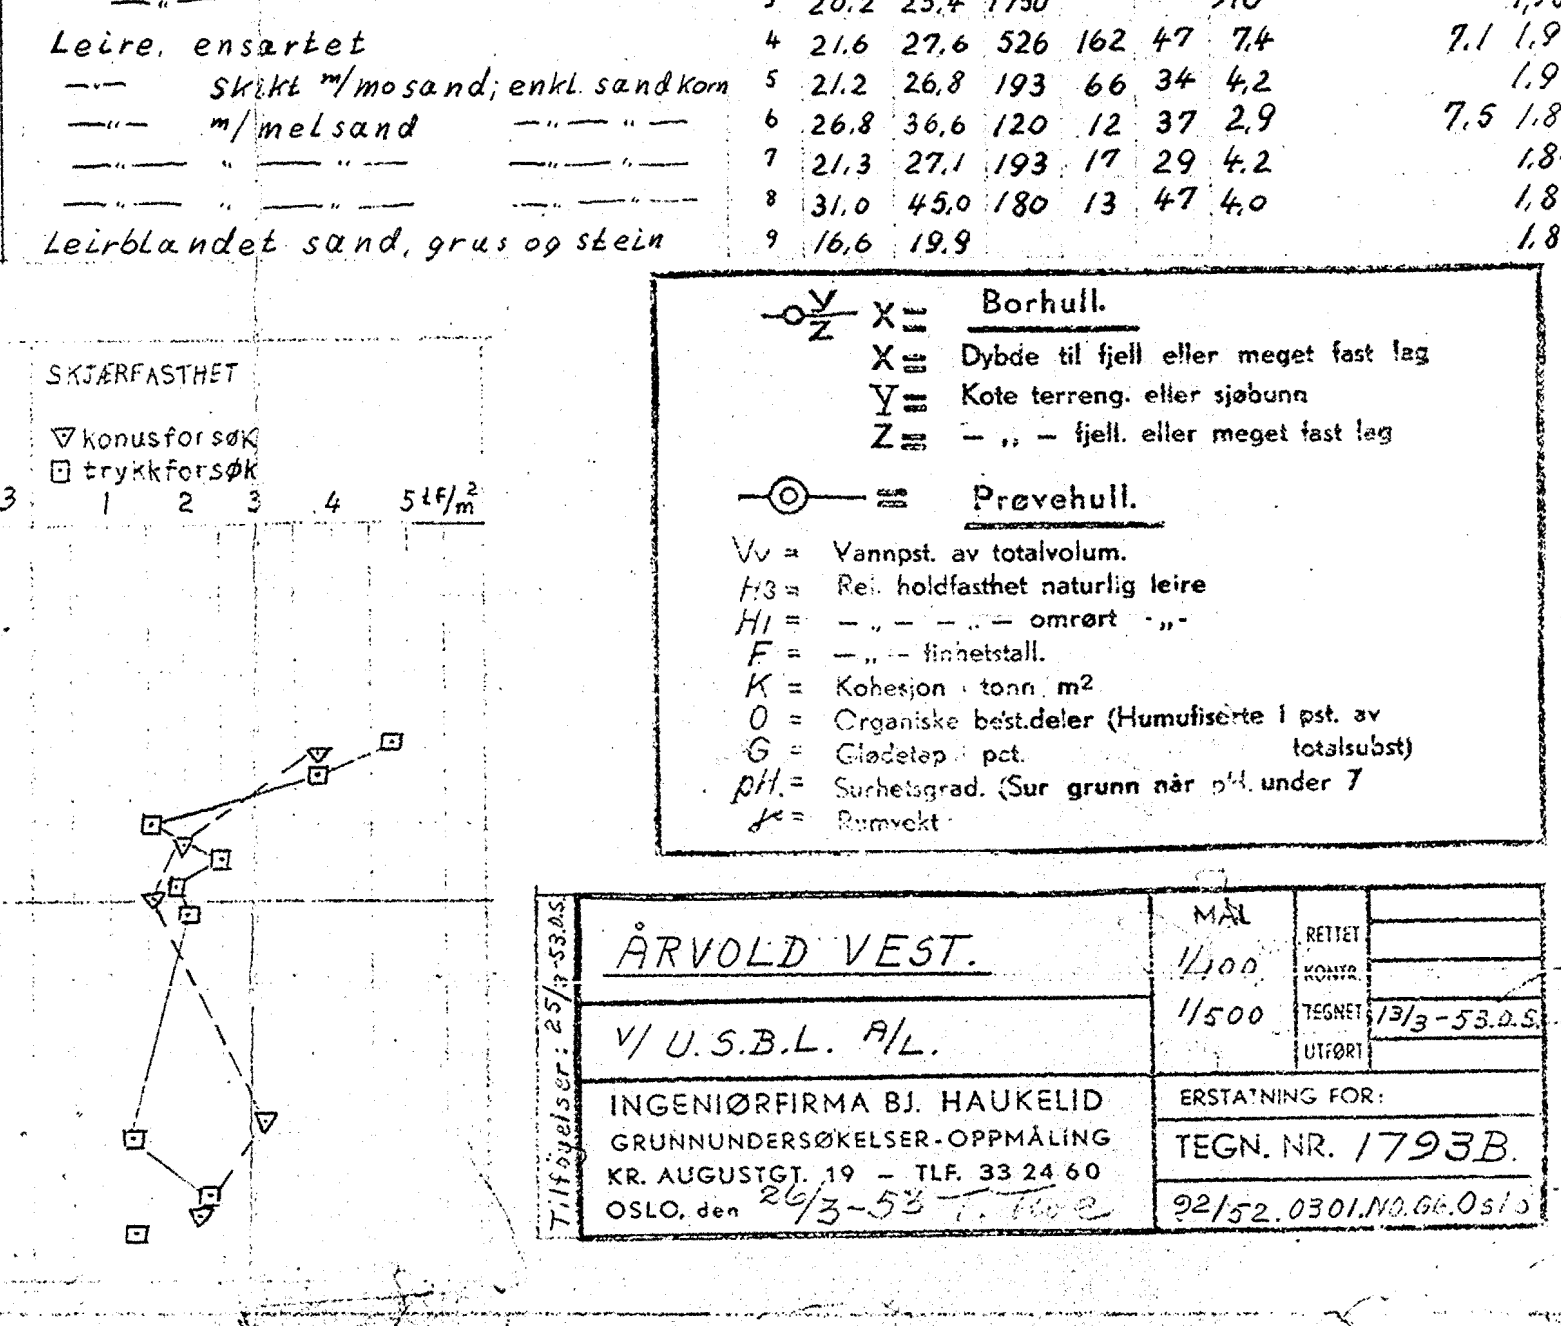 —"— 3 20.2 25,4 1750
Leire, ensartet 4 21.6 27,6 526 162 47 7,4 7.1 1.9
—"— Skikt m/mosand; enkl. sandkorn 5 21.2 26,8 193 66 34 4,2 1.9
—"— m/melsand —"— "— 6 26.8 36,6 120 12 37 2,9 7.5 1.8
—"— " —"— —"— 7 21,3 27,1 193 17 29 4.2 1.8
—"— " —"— —"— 8 31,0 45,0 180 13 47 4,0 1,8
Leirblandet sand, grus og stein 9 16,6 19.9 1.8
SKJÆRFASTHET
konusforsøk
trykkforsøk
3 1 2 3 4 5 tf/m²
Y/Z X = Borhull.
X = Dybde til fjell eller meget fast lag
Y = Kote terreng. eller sjøbunn
Z = — „ — fjell. eller meget fast lag
= Prøvehull.
Vv = Vannpst. av totalvolum.
H3 = Rel. holdfasthet naturlig leire
H1 = — „ — — „ — omrørt -„-
F = — „ — finhetstall.
K = Kohesjon i tonn m2
O = Organiske best.deler (Humufiserte i pst. av
totalsubst)
G = Glødetap i pct.
pH. = Surhetsgrad. (Sur grunn når pH. under 7
γ = Rumvekt
Tilföyelser: 25/3-53.D.S.
ÅRVOLD VEST.
V/ U.S.B.L. A/L.
INGENIØRFIRMA BJ. HAUKELID
GRUNNUNDERSØKELSER-OPPMÅLING
KR. AUGUSTGT. 19 – TLF. 33 24 60
OSLO, den 26/3-53
MÅL
1/100
1/500
RETTET
KONTR.
TEGNET 13/3-53.D.S.
UTFØRT
ERSTATNING FOR:
TEGN. NR. 1793B.
92/52.0301.NO.G6.Oslo